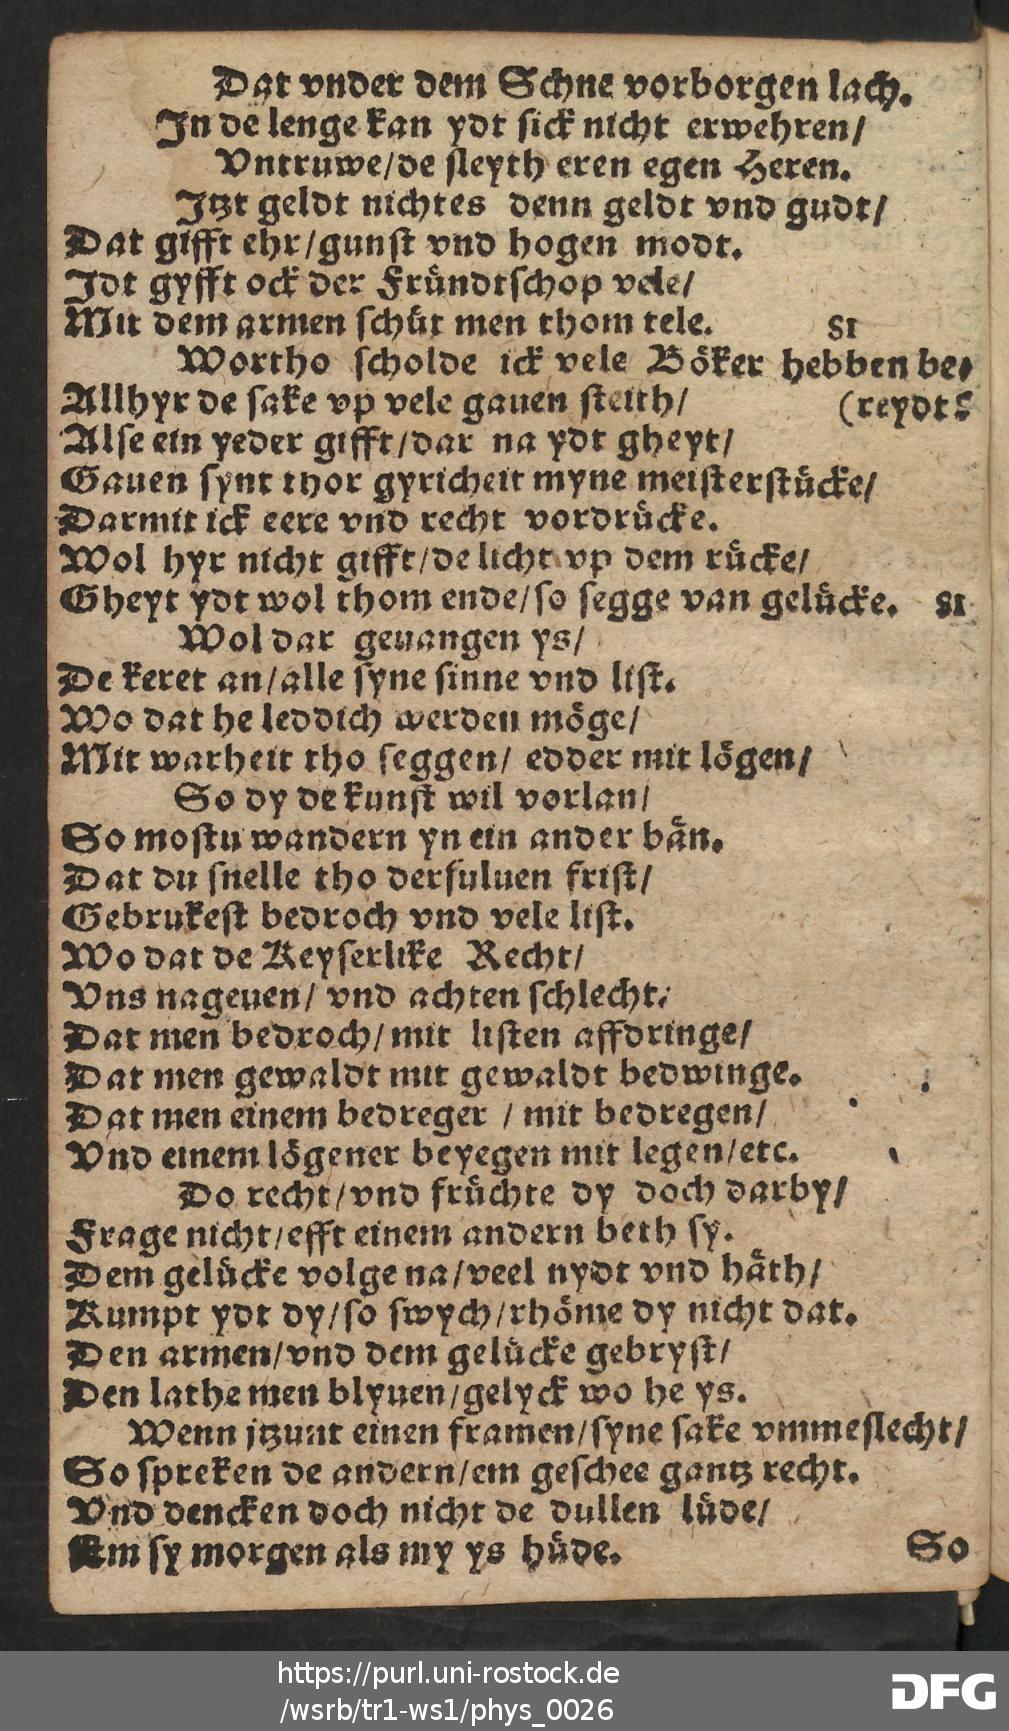 Dat vnder dem Schne vorborgen lach.
In de lenge kan ydt sick nicht erwehren/
Vntruwe/de sleyth eren egen Heren.
Itzt geldt nichtes denn geldt vnd gudt/
Dat gifft ehr/gunst vnd hogen modt.
Idt gyfft ock der Fründtschop vele/
Mit dem armen schüt men thom tele. 81
Wortho scholde ick vele Böker hebben be-
Allhyr de sake vp vele gauen steith/ (reydt?
Alse ein yeder gifft/dar na ydt gheyt/
Gauen synt thor gyricheit myne meisterstücke/
Darmit ick eere vnd recht vordrücke.
Wol hyr nicht gifft/de licht vp dem rücke/
Gheyt ydt wol thom ende/so segge van gelücke. 81
Wol dar geuangen ys/
De keret an/alle syne sinne vnd list.
Wo dat he leddich werden möge/
Mit warheit tho seggen/ edder mit lögen/
So dy de kunst wil vorlan/
So mostu wandern yn ein ander bän.
Dat du snelle tho dersuluen frist/
Gebrukest bedroch vnd vele list.
Wo dat de Keyserlike Recht/
Vns nageuen/ vnd achten schlecht.
Dat men bedroch/mit listen affdringe/
Dat men gewaldt mit gewaldt bedwinge.
Dat men einem bedreger / mit bedregen/
Vnd einem lögener beyegen mit legen/etc.
Do recht/vnd früchte dy doch darby/
Frage nicht/efft einem andern beth sy.
Dem gelücke volge na/veel nydt vnd häth/
Kumpt ydt dy/so swych/rhöme dy nicht dat.
Den armen/vnd dem gelücke gebryst/
Den lathe men blyuen/gelyck wo he ys.
Wenn jtzunt einen framen/syne sake vmmeslecht/
So spreken de andern/em geschee gantz recht.
Vnd dencken doch nicht de dullen lüde/
Em sy morgen als my ys hüde. So
https://purl.uni-rostock.de
/wsrb/tr1-ws1/phys_0026
DFG